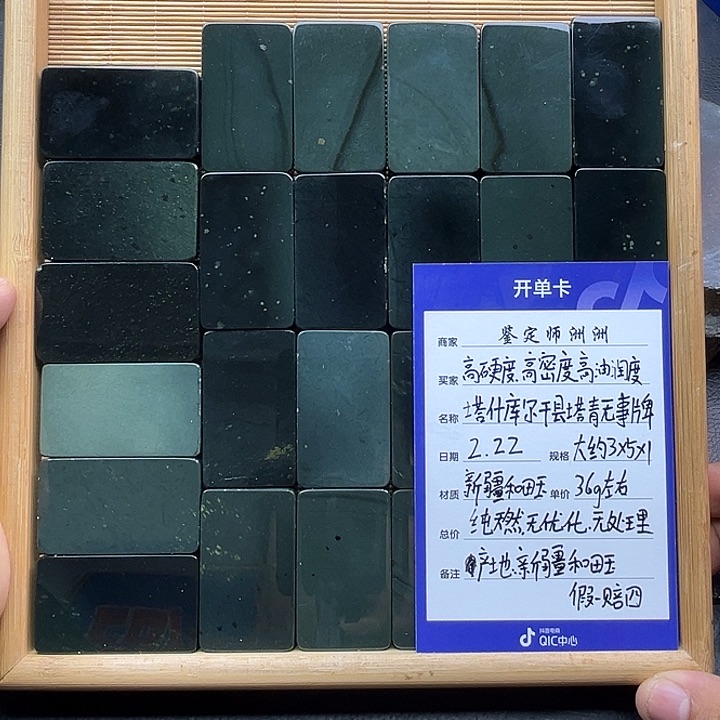 开单卡
商家 鉴定师洲洲
买家 高硬度、高密度高油润度
名称 塔什库尔干县塔青无事牌
日期 2.22 规格 大约3x5x1
材质 新疆和田玉 单价 36g左右
总价 纯天然,无优化,无处理
备注 产地:新疆和田玉
假一赔四
抖音电商
QIC中心